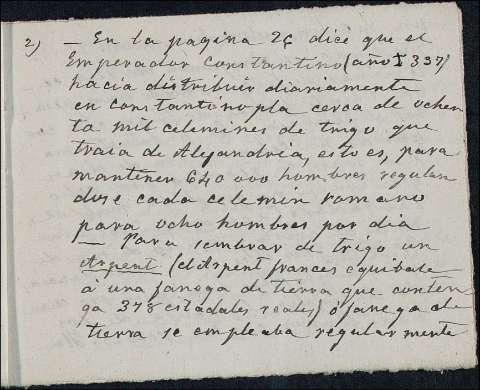 2) — En la pagina 26 dice que el
Emperador Constantino (año I 337)
hacia distribuir diariamente
en constantinopla cerca de ochen
ta mil celemines de trigo que
traia de Alejandria, esto es, para
mantener 640 000 hombres regulan
dose cada celemin romano
para ocho hombres por dia
— Para sembrar de trigo un
Arpent (el Arpent frances equibale
á una fanega de tierra que conten
ga 378 estadales reales) ó fanega de
tierra se empleaba regularmente